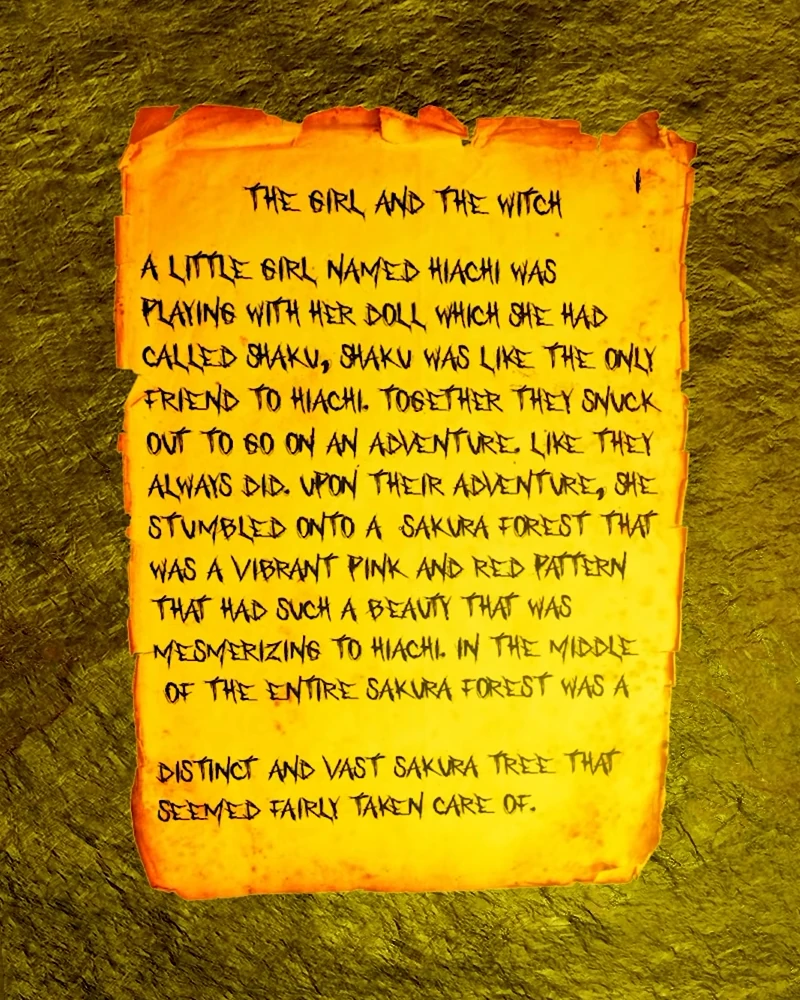 1
THE GIRL AND THE WITCH
A LITTLE GIRL NAMED HIACHI WAS
PLAYING WITH HER DOLL WHICH SHE HAD
CALLED SHAKU, SHAKU WAS LIKE THE ONLY
FRIEND TO HIACHI. TOGETHER THEY SNUCK
OUT TO GO ON AN ADVENTURE. LIKE THEY
ALWAYS DID. UPON THEIR ADVENTURE, SHE
STUMBLED ONTO A SAKURA FOREST THAT
WAS A VIBRANT PINK AND RED PATTERN
THAT HAD SUCH A BEAUTY THAT WAS
MESMERIZING TO HIACHI. IN THE MIDDLE
OF THE ENTIRE SAKURA FOREST WAS A
DISTINCT AND VAST SAKURA TREE THAT
SEEMED FAIRLY TAKEN CARE OF.